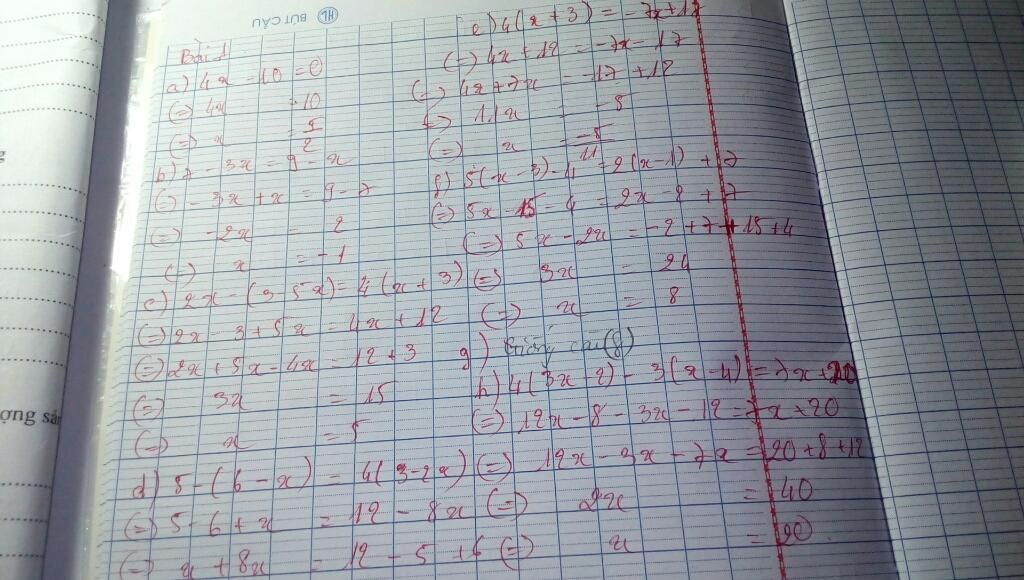 BÚT CẦU
Bài 1
a) 4x - 10 = 0
(=) 4x = 10
(=) x = 5/2
b) 7 - 3x = 9 - x
(=) - 3x + x = 9 - 7
(=) - 2x = 2
(=) x = - 1
c) 2x - (3 5x) = 4(x + 3)
(=) 2x - 3 + 5x = 4x + 12
(=) 2x + 5x - 4x = 12 + 3
(=) 3x = 15
(=) x = 5
d) 5 - (6 - x) = 4(3 - 2x)
(=) 5 - 6 + x = 12 - 8x
(=) x + 8x = 12 - 5 + 6
e) 4(x + 3) = - 7x + 17
(=) 4x + 12 = - 7x - 17
(=) 4x + 7x = - 17 + 12
(=) 11x = - 5
(=) x = -5/11
f) 5(x - 3) - 4 = 2(x - 1) + 7
(=) 5x - 15 - 4 = 2x - 2 + 7
(=) 5x - 2x = - 2 + 7 + 15 + 4
(=) 3x = 24
(=) x = 8
g) Giống câu (f)
h) 4(3x 2) - 3(x - 4) = 7x + 20
(=) 12x - 8 - 3x - 12 = 7x + 20
(=) 12x - 3x - 7x = 20 + 8 + 12
(=) 2x = 40
(=) x = 20
ợng sả